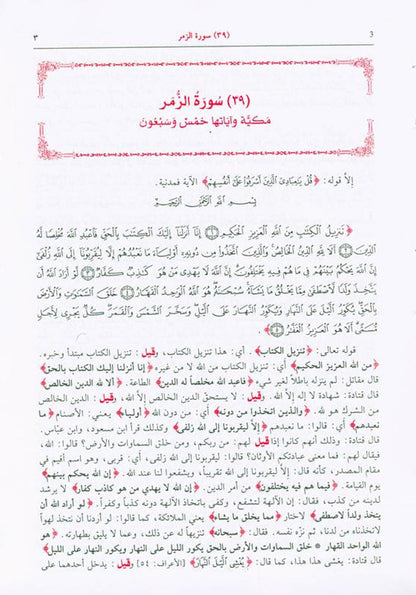 3 (٣٩) سورة الزمر ٣
(٣٩) سُورَةُ الزُّمَر
مَكيَّة وآيَاتها خَمْس وَسَبْعُونَ
إلاَّ قوله: ﴿قُلْ يَٰعِبَادِيَ الَّذِينَ أَسْرَفُوا عَلَىٰ أَنفُسِهِمْ﴾ الآية فمدنية.
بِسْمِ اللَّهِ الرَّحْمَٰنِ الرَّحِيمِ
﴿تَنزِيلُ الْكِتَٰبِ مِنَ اللَّهِ الْعَزِيزِ الْحَكِيمِ ۝١ إِنَّا أَنزَلْنَا إِلَيْكَ الْكِتَٰبَ بِالْحَقِّ فَاعْبُدِ اللَّهَ مُخْلِصًا لَّهُ
الدِّينَ ۝٢ أَلَا لِلَّهِ الدِّينُ الْخَالِصُ وَالَّذِينَ اتَّخَذُوا مِن دُونِهِ أَوْلِيَاءَ مَا نَعْبُدُهُمْ إِلَّا لِيُقَرِّبُونَا إِلَى اللَّهِ زُلْفَىٰ
إِنَّ اللَّهَ يَحْكُمُ بَيْنَهُمْ فِي مَا هُمْ فِيهِ يَخْتَلِفُونَ إِنَّ اللَّهَ لَا يَهْدِي مَنْ هُوَ كَٰذِبٌ كَفَّارٌ ۝٣ لَّوْ أَرَادَ اللَّهُ أَن
يَتَّخِذَ وَلَدًا لَّاصْطَفَىٰ مِمَّا يَخْلُقُ مَا يَشَاءُ سُبْحَٰنَهُ هُوَ اللَّهُ الْوَٰحِدُ الْقَهَّارُ ۝٤ خَلَقَ السَّمَٰوَٰتِ وَالْأَرْضَ
بِالْحَقِّ يُكَوِّرُ اللَّيْلَ عَلَى النَّهَارِ وَيُكَوِّرُ النَّهَارَ عَلَى اللَّيْلِ وَسَخَّرَ الشَّمْسَ وَالْقَمَرَ كُلٌّ يَجْرِي لِأَجَلٍ
مُّسَمًّى أَلَا هُوَ الْعَزِيزُ الْغَفَّٰرُ ۝٥﴾
قوله تعالى: ﴿تنزيل الكتاب﴾. أي: هذا تنزيل الكتاب، وقيل: تنزيل الكتاب مبتدأ وخبره.
﴿من الله العزيز الحكيم﴾ أي: تنزيل الكتاب من الله لا من غيره ﴿إنا أنزلنا إليك الكتاب بالحق﴾
قال مقاتل: لم ينزله باطلاً لغير شيء ﴿فاعبد الله مخلصاً له الدين﴾ الطاعة. ﴿ألا لله الدين الخالص﴾
قال قتادة: شهادة لا إله إلاَّ الله. وقيل: لا يستحقّ الدين الخالص إلاَّ الله، وقيل: الدين الخالص
من الشرك هو لله. ﴿والذين اتخذوا من دونه﴾ أي: من دون الله ﴿أوليا﴾ يعني: الأصنام ﴿ما
نعبدهم﴾ أي: قالوا: ما نعبدهم ﴿إلا ليقربونا إلى الله زلفى﴾ وكذلك قرأ ابن مسعود، وابن عبّاس.
قال قتادة: وذلك أنهم كانوا إذا قيل لهم: من ربكم، ومن خلق السماوات والأرض؟ قالوا: الله،
فيقال لهم: فما معنى عبادتكم الأوثان؟ قالوا: ليقربونا إلى الله زلفى، أي: قربى، وهو اسم أقيم في
مقام المصدر، كأنه قال: إلا ليقربونا إلى الله تقريباً، ويشفعوا لنا عند الله. ﴿إن الله يحكم بينهم﴾
يوم القيامة. ﴿فيما هم فيه يختلفون﴾ من أمر الدين. ﴿إن الله لا يهدي من هو كاذب كفار﴾ لا يرشد
لدينه من كذب، فقال: إن الآلهة لتشفع، وكفى باتخاذ الآلهة دونه كذباً وكفراً. ﴿لو أراد الله أن
يتخذ ولداً لاصطفى﴾ لاختار ﴿مما يخلق ما يشاء﴾ يعني: الملائكة، كما قالوا: لو أردنا أن نتخذ لهواً
لاتخذناه من لدنا، ثم نزّه نفسه. فقال: ﴿سبحانه﴾ تنزيهاً له عن ذلك، وعما لا يليق بطهارته. ﴿هو
الله الواحد القهار * خلق السماوات والأرض بالحق يكور الليل على النهار ويكور النهار على الليل﴾
قال قتادة: يغشى هذا هذا، كما قال: ﴿يُغْشِي اللَّيْلَ النَّهَارَ﴾ [الأعراف: ٥٤] وقيل: يدخل أحدهما على